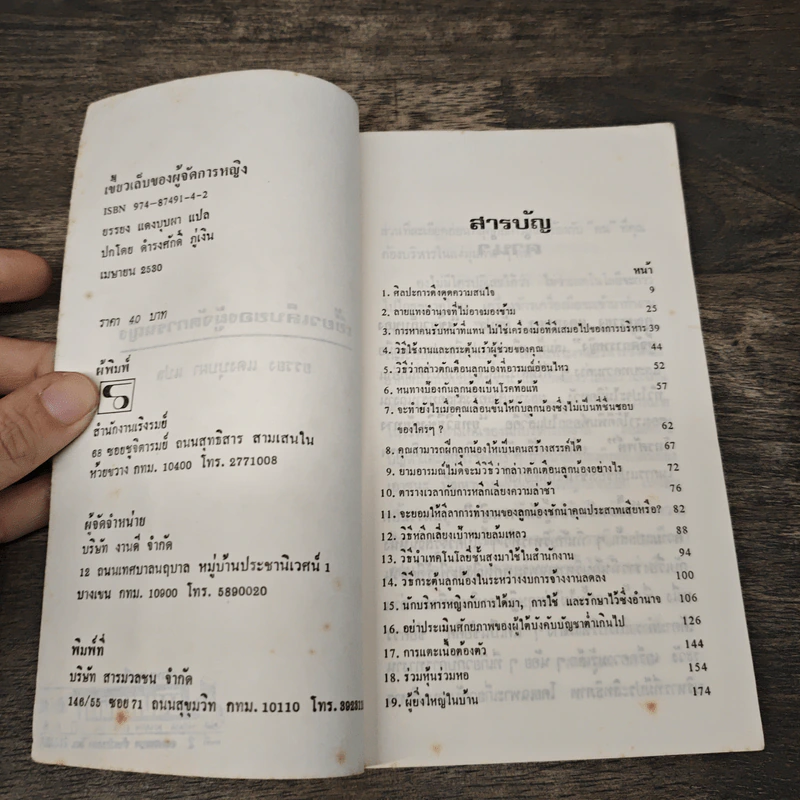 เขี้ยวเล็บของผู้จัดการหญิง
ISBN 974-87491-4-2
ยรรยง แดงบุบผา แปล
ปกโดย ดำรงศักดิ์ ภู่เงิน
เมษายน 2530
ราคา 40 บาท
ผู้พิมพ์
สำนักงานเริงรมย์
68 ซอยชูจิตารมย์ ถนนสุทธิสาร สามเสนใน
ห้วยขวาง กทม. 10400 โทร. 2771008
ผู้จัดจำหน่าย
บริษัท งานดี จำกัด
12 ถนนเทศบาลนฤบาล หมู่บ้านประชานิเวศน์ 1
บางเขน กทม. 10900 โทร. 5890020
พิมพ์ที่
บริษัท สารมวลชน จำกัด
146/55 ซอย 71 ถนนสุขุมวิท กทม. 10110 โทร.
สารบัญ
หน้า
1. ศิลปะการดึงดูดความสนใจ 9
2. ลายแทงอำนาจที่ไม่อาจมองข้าม 25
3. การหาคนรับหน้าที่แทน ไม่ใช่เครื่องมือที่ดีเสมอไปของการบริหาร 39
4. วิธีใช้งานและกระตุ้นเร้าผู้ช่วยของคุณ 44
5. วิธีว่ากล่าวตักเตือนลูกน้องที่อารมณ์อ่อนไหว 52
6. หนทางป้องกันลูกน้องเป็นโรคท้อแท้ 57
7. จะทำยังไรเมื่อคุณเลื่อนขั้นให้กับลูกน้องซึ่งไม่เป็นที่ชื่นชอบ
ของใครๆ ? 62
8. คุณสามารถฝึกลูกน้องให้เป็นคนสร้างสรรค์ได้ 67
9. ยามอารมณ์ไม่ดีจะมีวิธีว่ากล่าวตักเตือนลูกน้องอย่างไร 72
10. ตารางเวลากับการหลีกเลี่ยงความล่าช้า 76
11. จะยอมให้ลีลาการทำงานของลูกน้องชักนำคุณประสาทเสียหรือ? 82
12. วิธีหลีกเลี่ยงเป้าหมายล้มเหลว 88
13. วิธีนำเทคโนโลยี่ชั้นสูงมาใช้ในสำนักงาน 94
14. วิธีกระตุ้นลูกน้องในระหว่างงบการจ้างงานลดลง 100
15. นักบริหารหญิงกับการได้มา, การใช้ และรักษาไว้ซึ่งอำนาจ 106
16. อย่าประเมินศักยภาพของผู้ใต้บังคับบัญชาต่ำเกินไป 126
17. การแตะเนื้อต้องตัว 144
18. ร่วมหุ้นร่วมหอ 154
19. ผู้ยิ่งใหญ่ในบ้าน 174